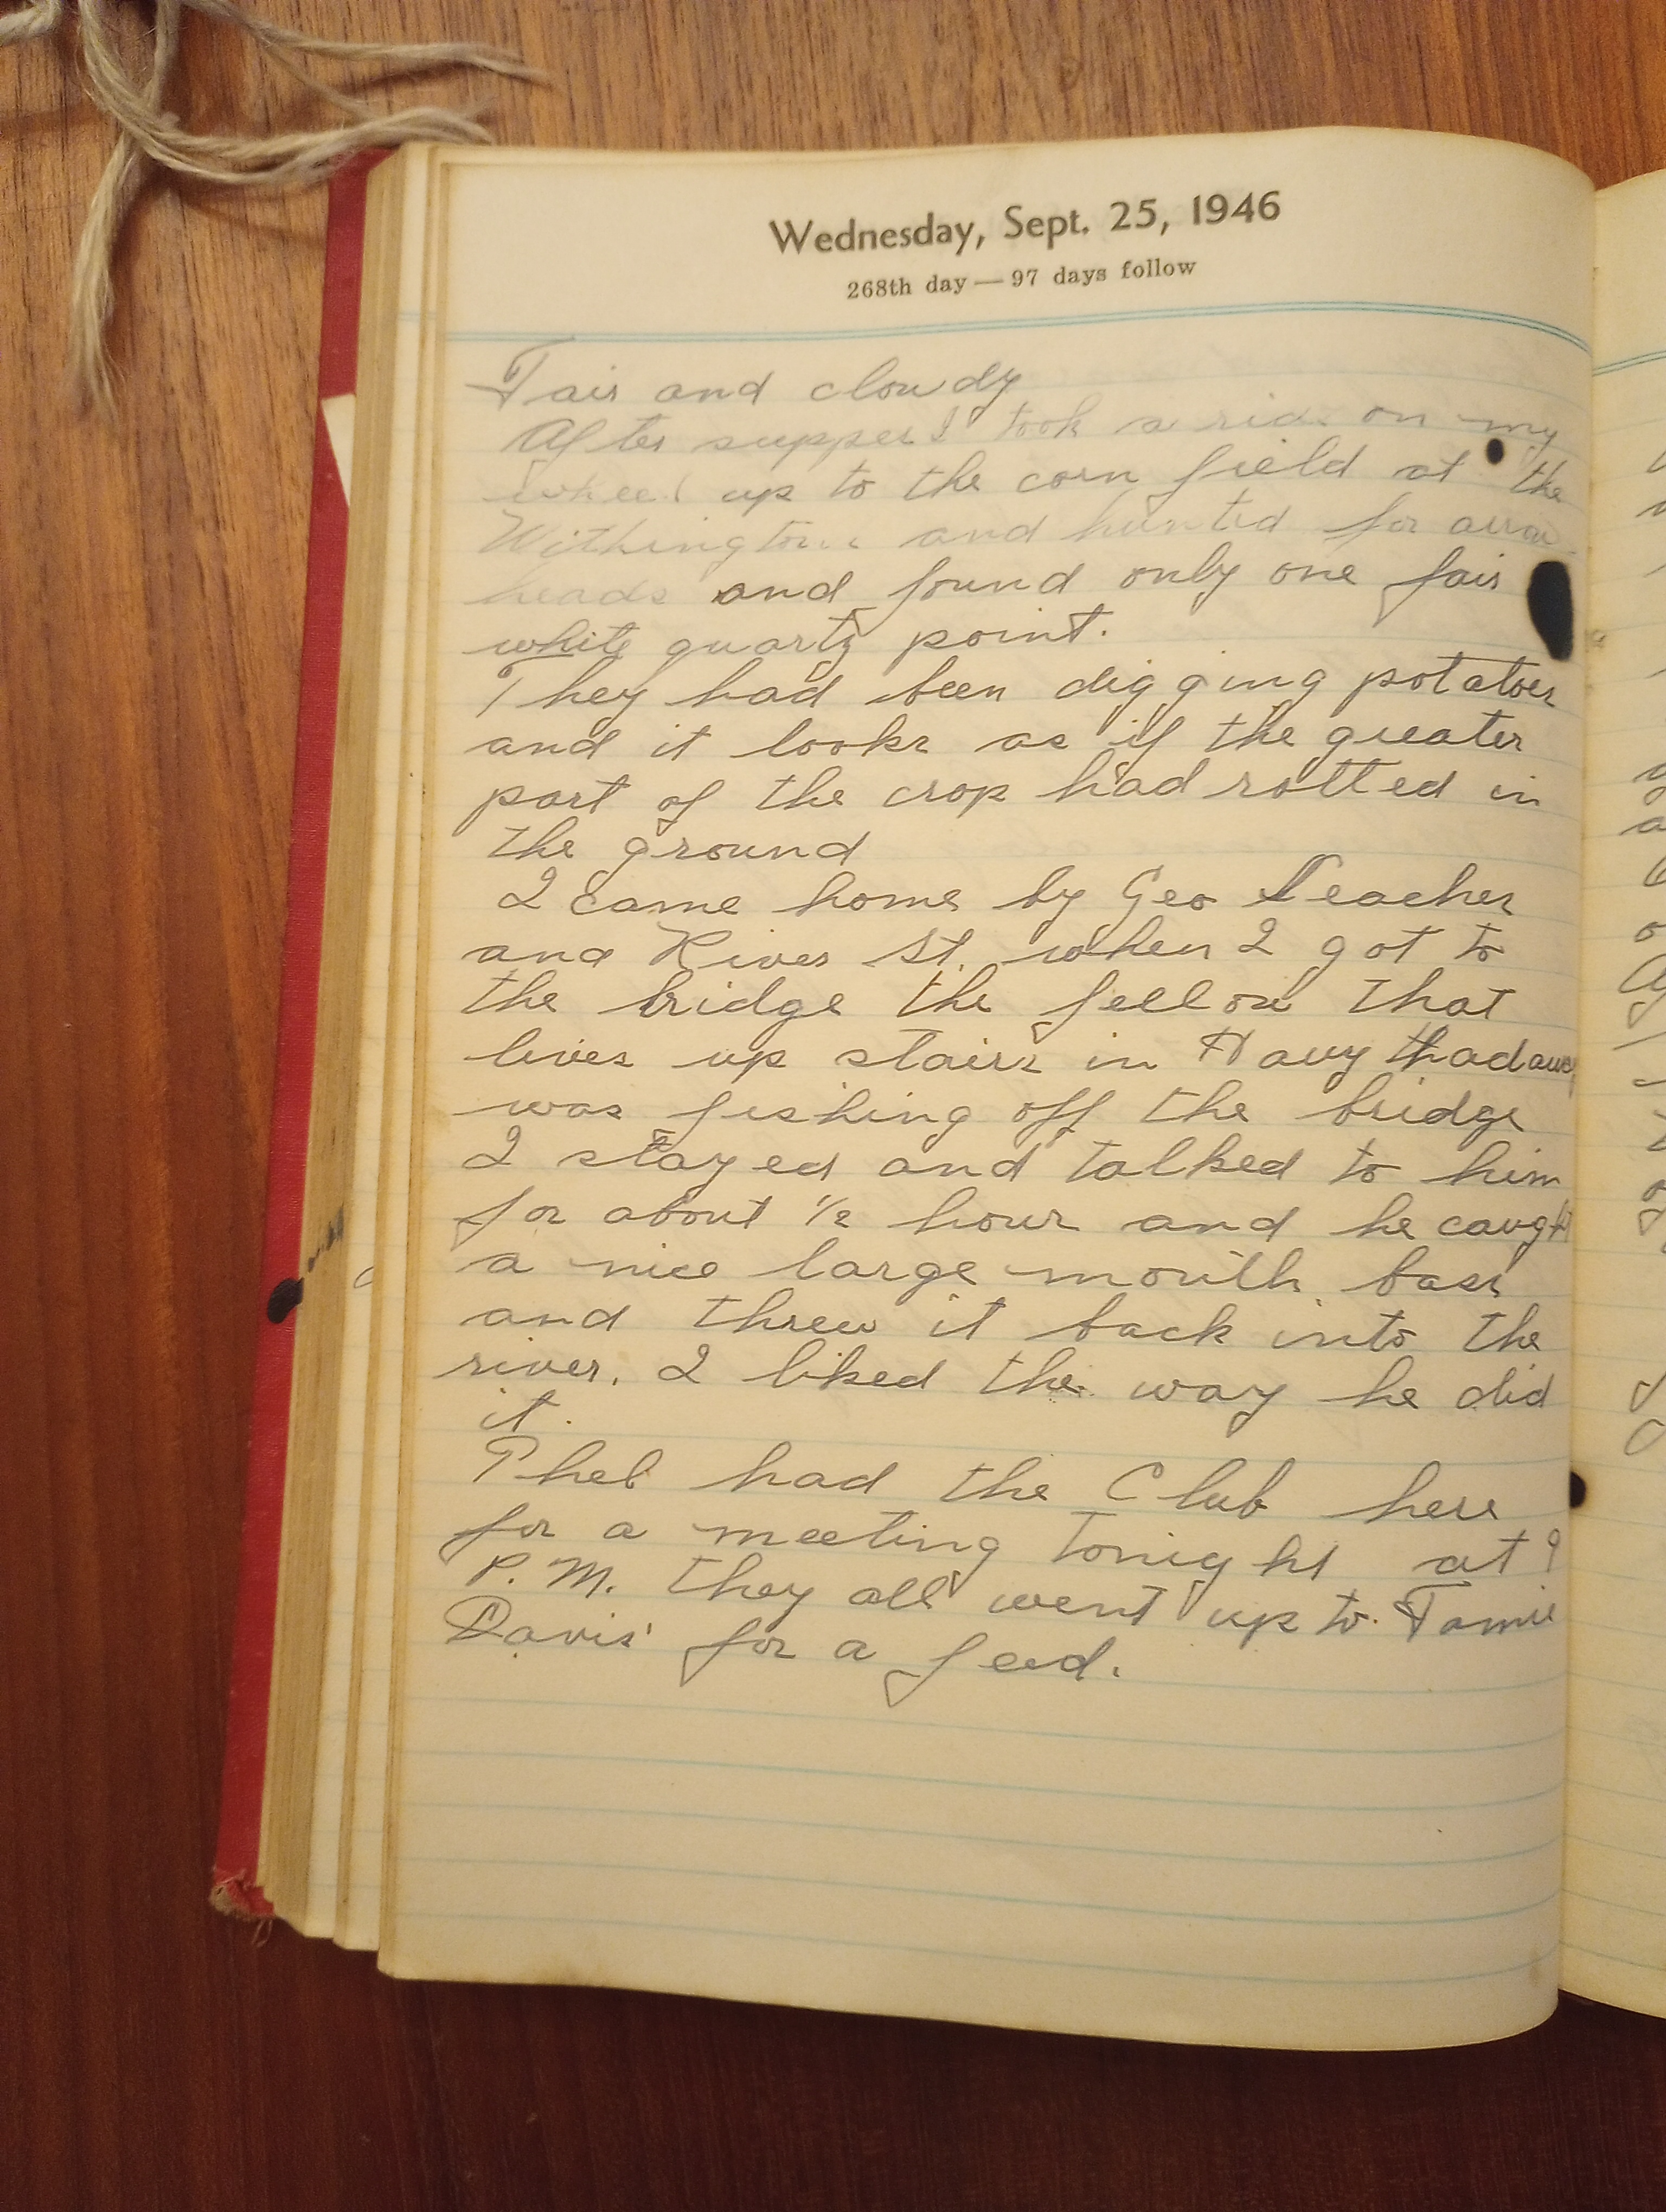 Wednesday, Sept. 25, 1946
268th day — 97 days follow
Fair and cloudy
After supper I took a ride on my
wheel up to the corn field at the
Withingtons and hunted for arrow
heads and found only one fair
white quartz point.
They had been digging potatoes
and it looks as if the greater
part of the crop had rotted in
the ground
I came home by Geo
and River St. when I got to
the bridge the fellow that
lives up stairs in
was fishing off the bridge
I stayed and talked to him
for about 1/2 hour and he caught
a nice large mouth bass
and threw it back into the
river. I liked the way he did
it.
Pheb had the Club here
for a meeting tonight at 9
P.M. they all went up to
Davis' for a feed.